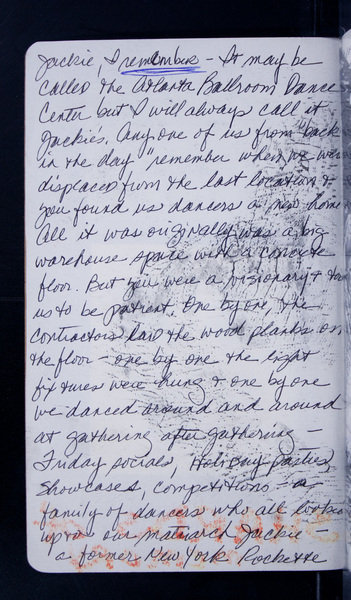 Jackie, I remember - It may be
called the Atlanta Ballroom Dance
Center but I will always call it
Jackie's. Any one of us from "back
in the day" remember when we were
displaced from the last location &
you found us dancers a new home
All it was originally was a big
warehouse space with a concrete
floor. But you were a visionary & told
us to be patient. One by one, the
contractors laid the wood planks on
the floor - one by one the light
fixtures were hung & one by one
we danced around and around
at gathering after gathering -
Friday socials, Holiday parties,
Showcases, competitions - a
family of dancers who all looked
up to our matriarch Jackie -
a former New York Rockette